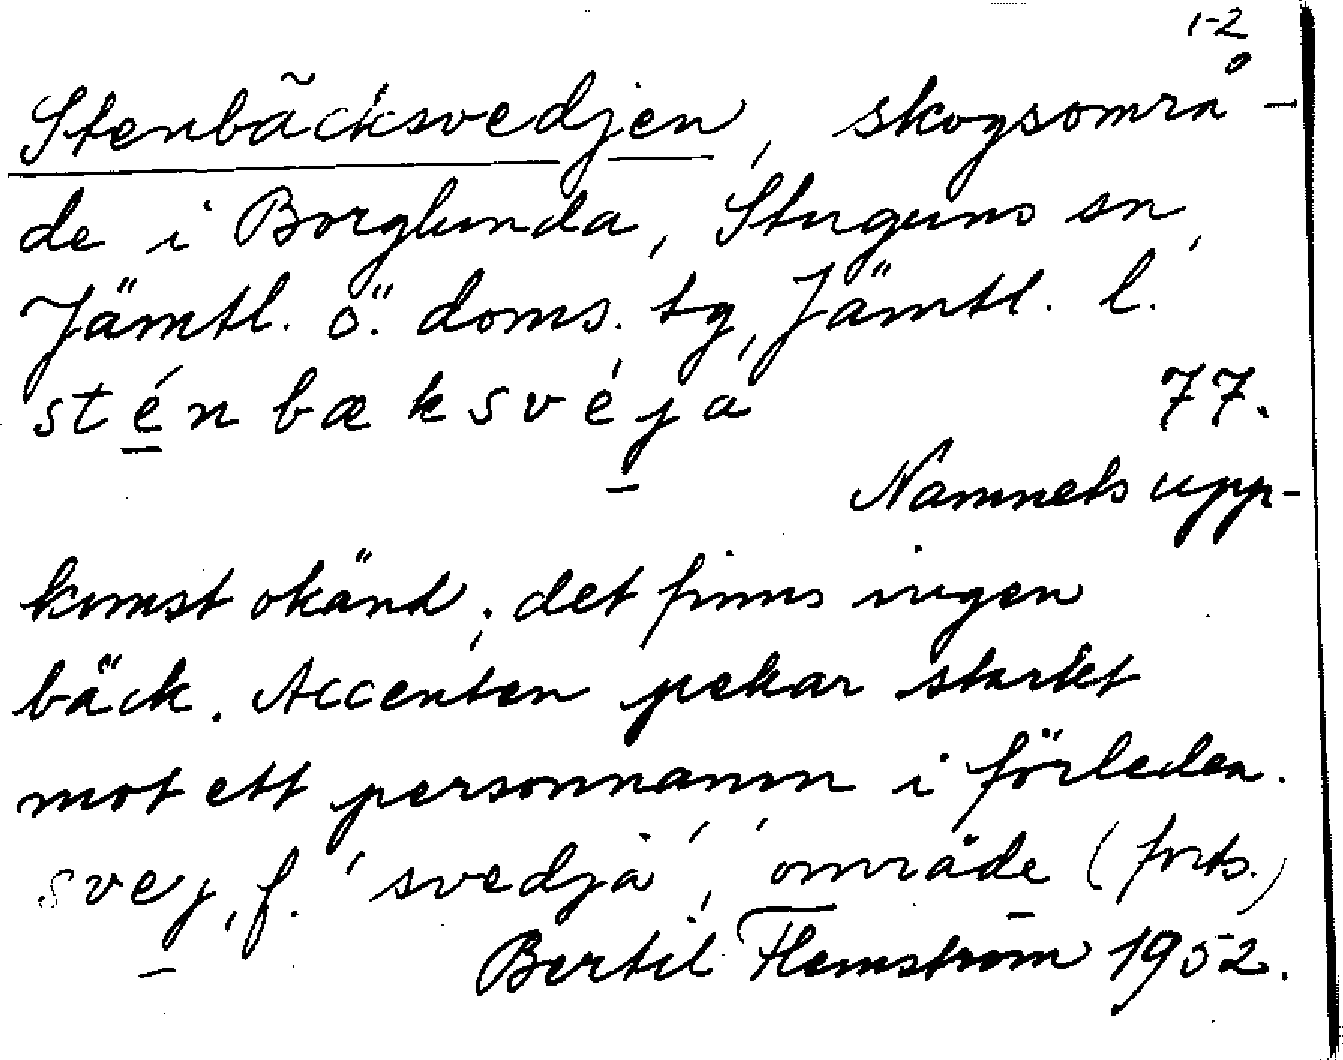 1-2
Stenbäcksvedjen, skogsområ-
de i Borglunda, Stuguns sn,
Jämtl. ö. doms. tg, Jämtl. l.
sténbæksvéja 77.
Namnets upp-
komst okänd; det finns ingen
bäck. Accenten pekar starkt
mot ett personnamn i förleden.
svej, f. 'svedja', område (forts.)
Bertil Flemström 1952.